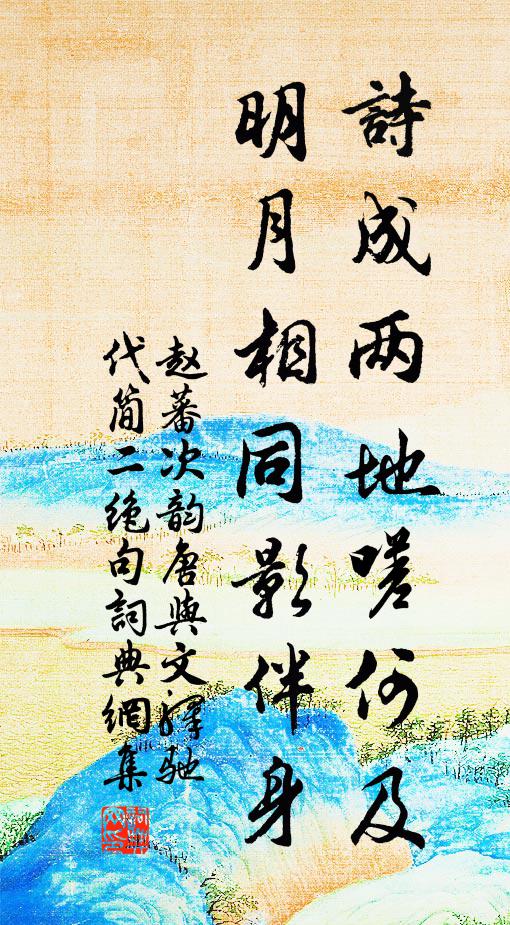 詩成两地嗟何及
明月相同影伴身
赵蕃次韵唐與文禪馳
代简二绝句詞典網集